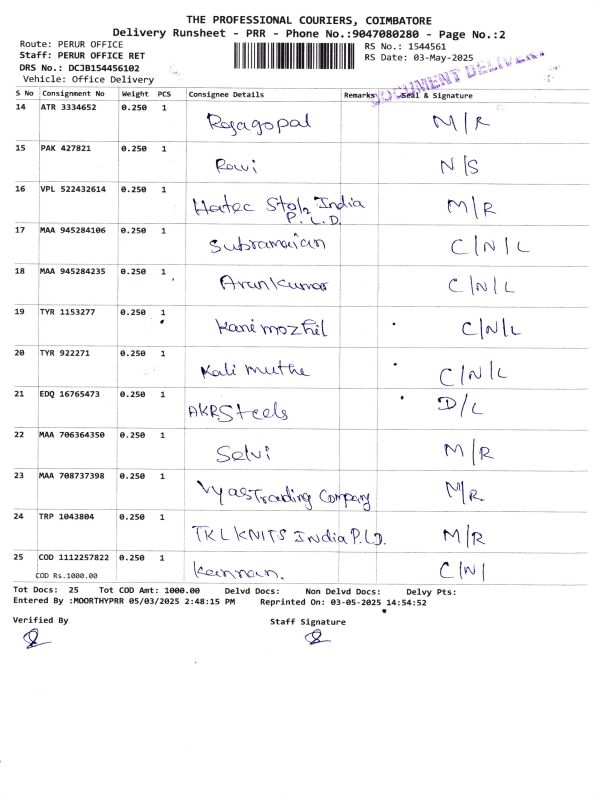 THE PROFESSIONAL COURIERS, COIMBATORE
Delivery Runsheet - PRR - Phone No.:9047080280 - Page No.:2
Route: PERUR OFFICE
RS No.: 1544561
Staff: PERUR OFFICE RET
RS Date: 03-May-2025
DRS No.: DCJB154456102
Vehicle: Office Delivery
DOCUMENT DELIVERY
S No Consignment No Weight PCS Consignee Details Remarks Seal & Signature
14 ATR 3334652 0.250 1 Rajagopal M/R
15 PAK 427821 0.250 1 Ravi N/S
16 VPL 522432614 0.250 1 Hatec India M/R
P.L.D.
17 MAA 945284106 0.250 1 Subramaian C/N/L
18 MAA 945284235 0.250 1 Arunkumar C/N/L
19 TYR 1153277 0.250 1 Kanimozhil C/N/L
20 TYR 922271 0.250 1 Kali muthe C/N/L
21 EDQ 16765473 0.250 1 AKR Steels D/L
22 MAA 706364350 0.250 1 Selvi M/R
23 MAA 708737398 0.250 1 Vyas Trading Company M/R
24 TRP 1043804 0.250 1 TKL KNITS India P.LD. M/R
25 COD 1112257822 0.250 1 Kannan. C/N/
COD Rs.1000.00
Tot Docs: 25 Tot COD Amt: 1000.00 Delvd Docs: Non Delvd Docs: Delvy Pts:
Entered By :MOORTHYPRR 05/03/2025 2:48:15 PM Reprinted On: 03-05-2025 14:54:52
Verified By Staff Signature